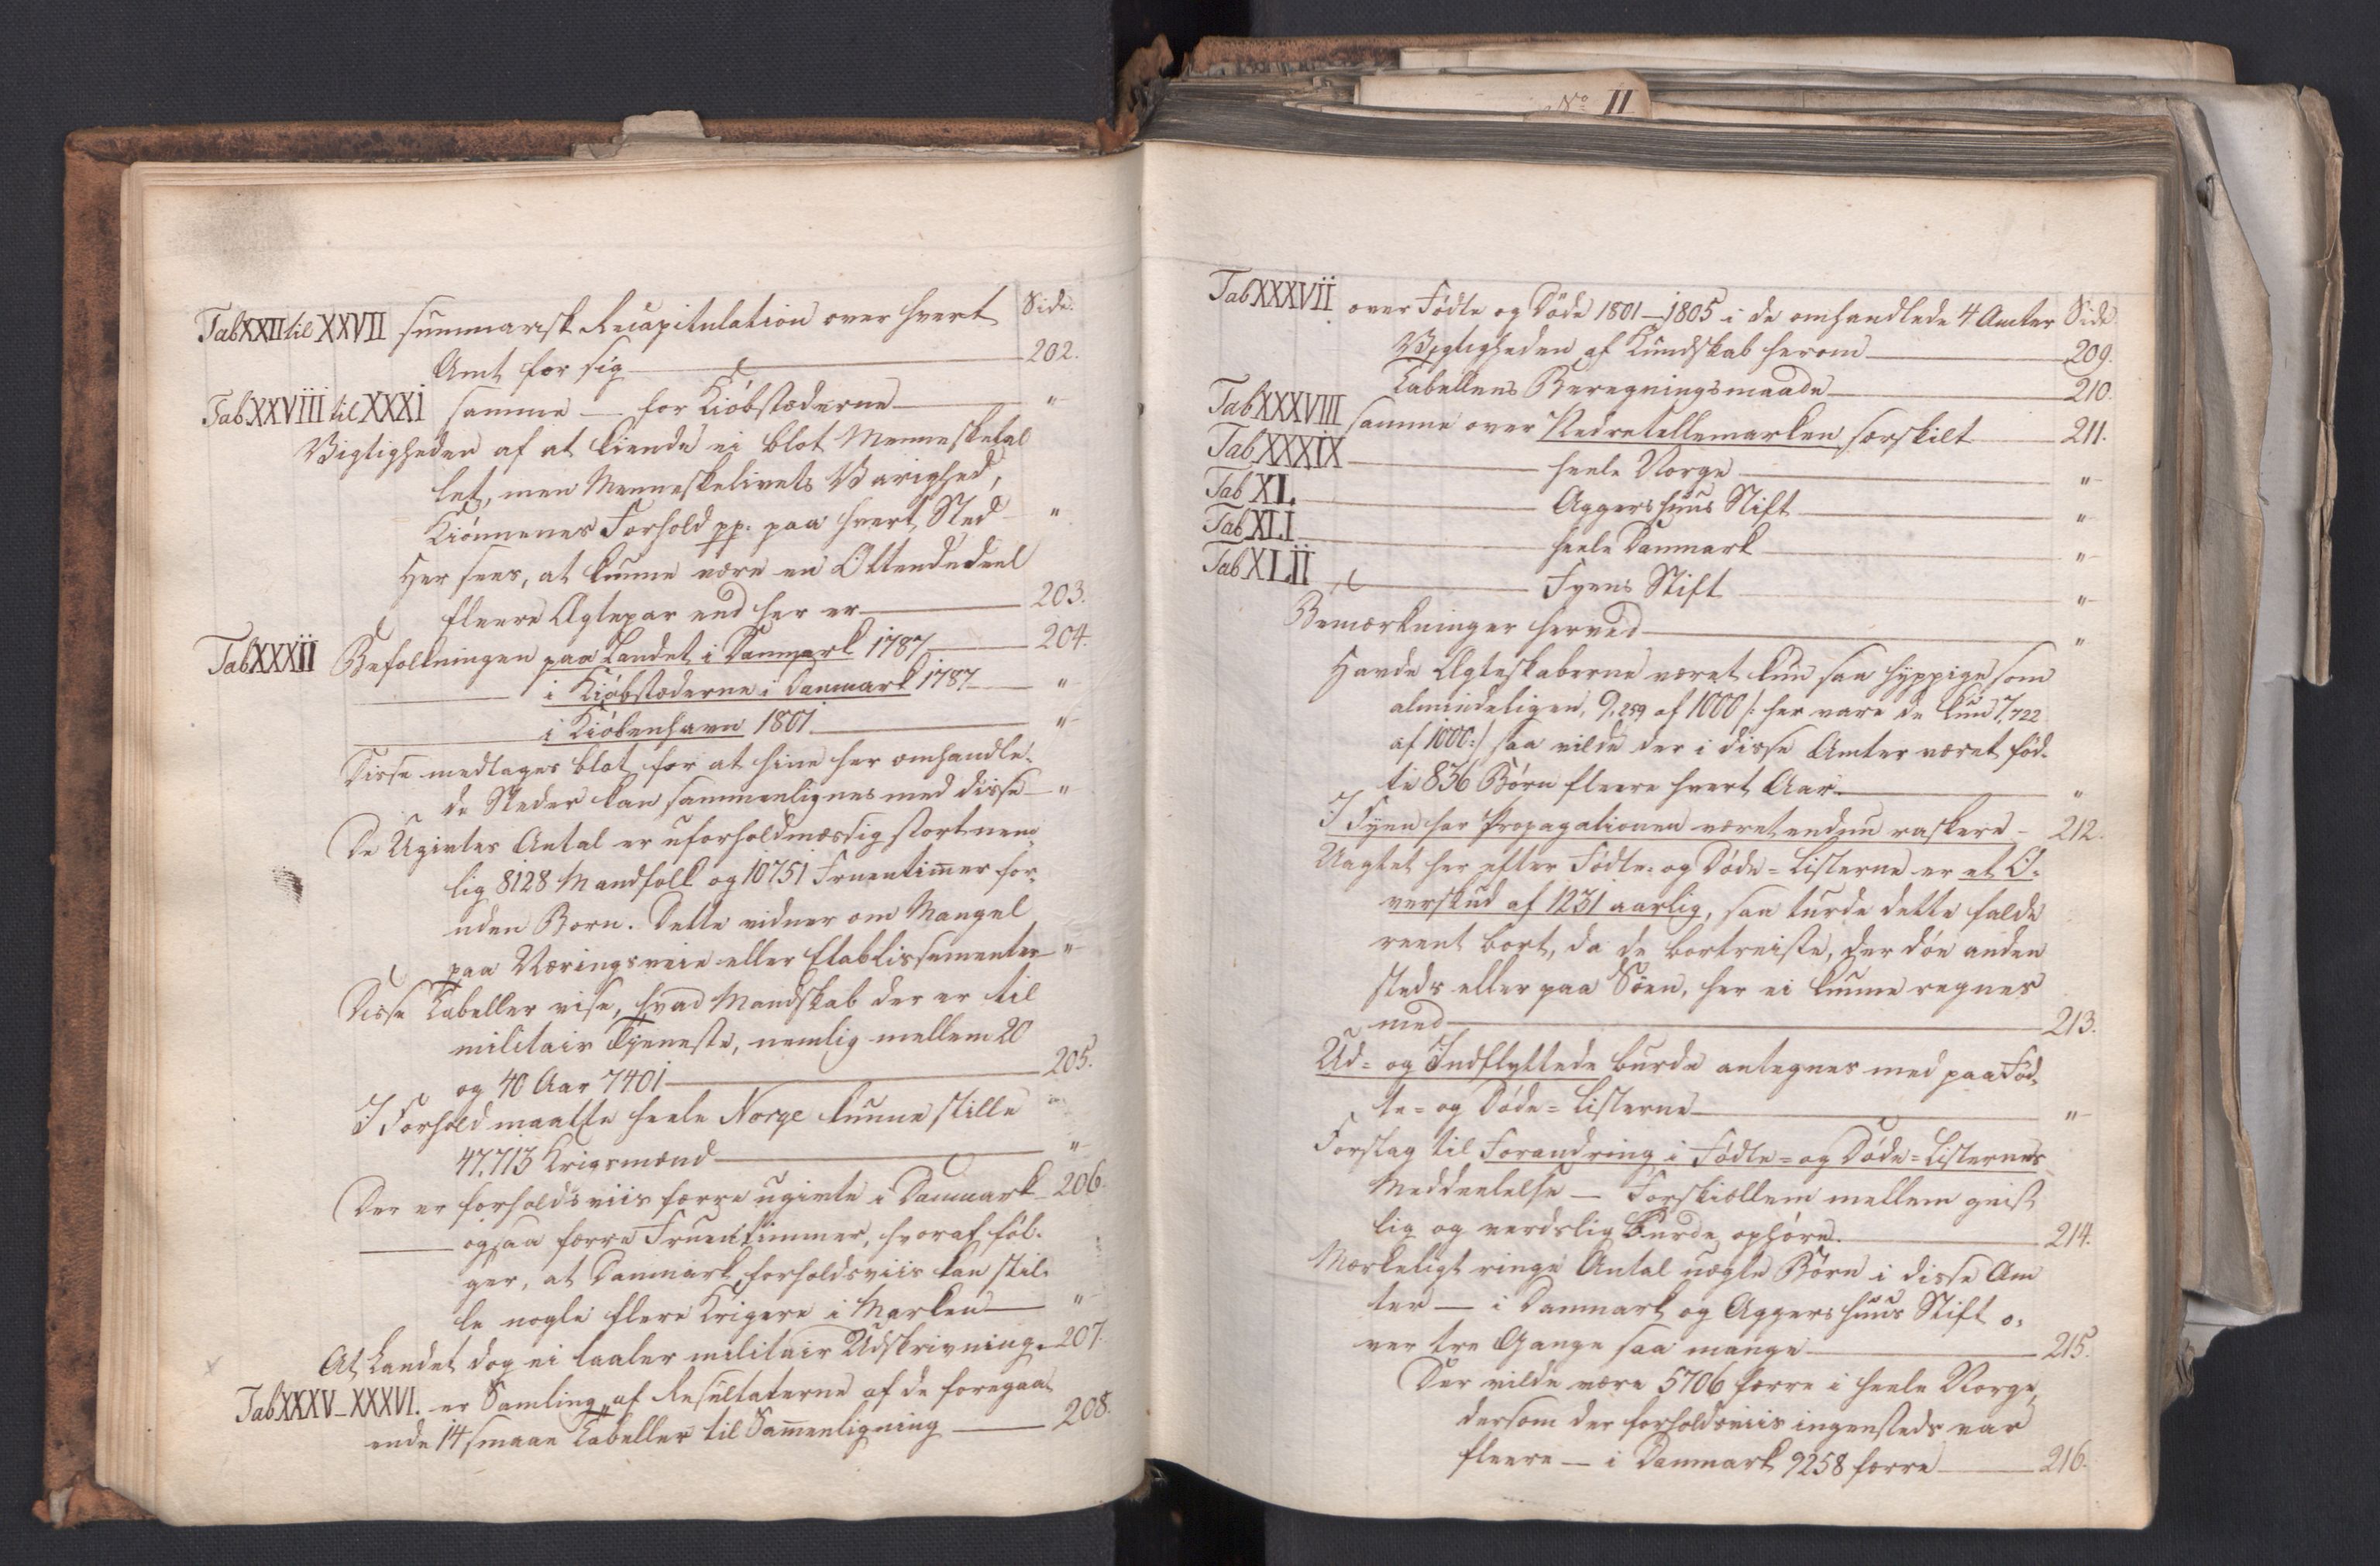 Side.
Tab XXII til XXVII summarisk Recapitulation over hvert
Amt for sig — 202.
Tab XXVIII til XXXI samme — for Kiöbstæderne — "
Vigtigheden af at kiende ei blot Mennesketal
let, men Menneskelivets Varighed,
Kiönnenes Forhold pp. paa hvert Sted — "
Her sees, at kunne være en Ottendedeel
fleere Ægtepar end her er — 203.
Tab XXXII Befolkningen paa Landet i Danmark 1787 — 204.
— i Kiöbstæderne i Danmark 1787 — "
— i Kiöbenhavn 1801 — "
Disse medtages blot for at hine her omhandle-
de Steder kan sammenlignes med disse — "
De Ugivtes Antal er uforholdmæssig stort nem-
lig 8128 Mandfolk og 10751 Fruentimer for-
uden Born. Dette vidner om Mangel
paa Næringsveie eller Etablissementer — "
Disse Tabeller vise, hvad Mandskab der er til
militair Tjeneste, nemlig mellem 20
og 40 Aar 7401 — 205.
I Forhold maatte heele Norge kunne stille
47,713 Krigsmænd — "
Der er forholdsviis færre ugivte i Danmark — 206.
— ogsaa færre Fruentimmer, hvoraf föl-
ger, at Danmark forholdsviis kan stil-
le nogle flere Krigere i Marken — "
At Landet dog ei taaler militair Udskrivning. 207.
Tab XXXV–XXXVI. er Samling af Resultaterne af de foregaa-
ende 14 smaae Tabeller til Samenligning — 208.
No II
Tab XXXVII over Födte og Döde 1801–1805 i de omhandlede 4 Amter Side
Vigtigheden af Kundskab herom — 209.
Tabellens Beregningsmaade — 210.
Tab XXXVIII samme over Nedretellemarken særskilt — 211.
Tab XXXIX — heele Norge — "
Tab XL. — Aggershuus Stift — "
Tab XLI — heele Danmark — "
Tab XLII — Fyens Stift — "
Bemærkninger herved — "
Havde Ægteskaberne været kun saa hyppige som
almindeligen, 9,259 af 1000 /: her vare de kun 7,722
af 1000 :/ saa vilde der i disse Amter været föd-
te 836 Börn fleere hvert Aar — "
I Fyen har Propagationen været endnu raskere — 212.
Uagtet her efter Födte- og Döde-Listerne er et O-
verskud af 1231 aarlig, saa turde dette falde
reent bort, da de bortreiste, der döe anden
steds eller paa Söen, her ei kunne regnes
med — 213.
Ud- og Indflyttede burde antegnes med paa Föd-
te- og Döde-Listerne — "
Forslag til Forandring i Födte- og Döde-Listernes
Meddeelelse — Forskiællen mellem geist
lig og verdslig burde ophöre. — 214.
Mærkeligt ringe Antal uægte Börn i disse Am
ter — i Danmark og Aggershuus Stift o-
ver tre Gange saa mange — 215.
Der vilde være 5706 færre i heele Norge,
dersom der forholdsviis ingensteds var
fleere — i Danmark 9258 færre — 216.